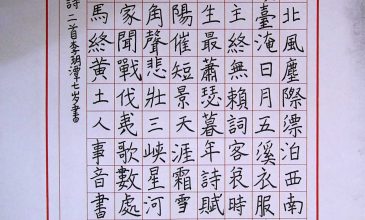 北風塵際漂泊西南
臺淹日月五溪衣服
主終無賴詞客哀時
生最蕭瑟暮年詩賦
陽催短景天涯霜雪
角聲悲壯三峽星河
家聞戰伐夷歌數處
馬終黃土人事音書
詩二首李玥潭七岁書